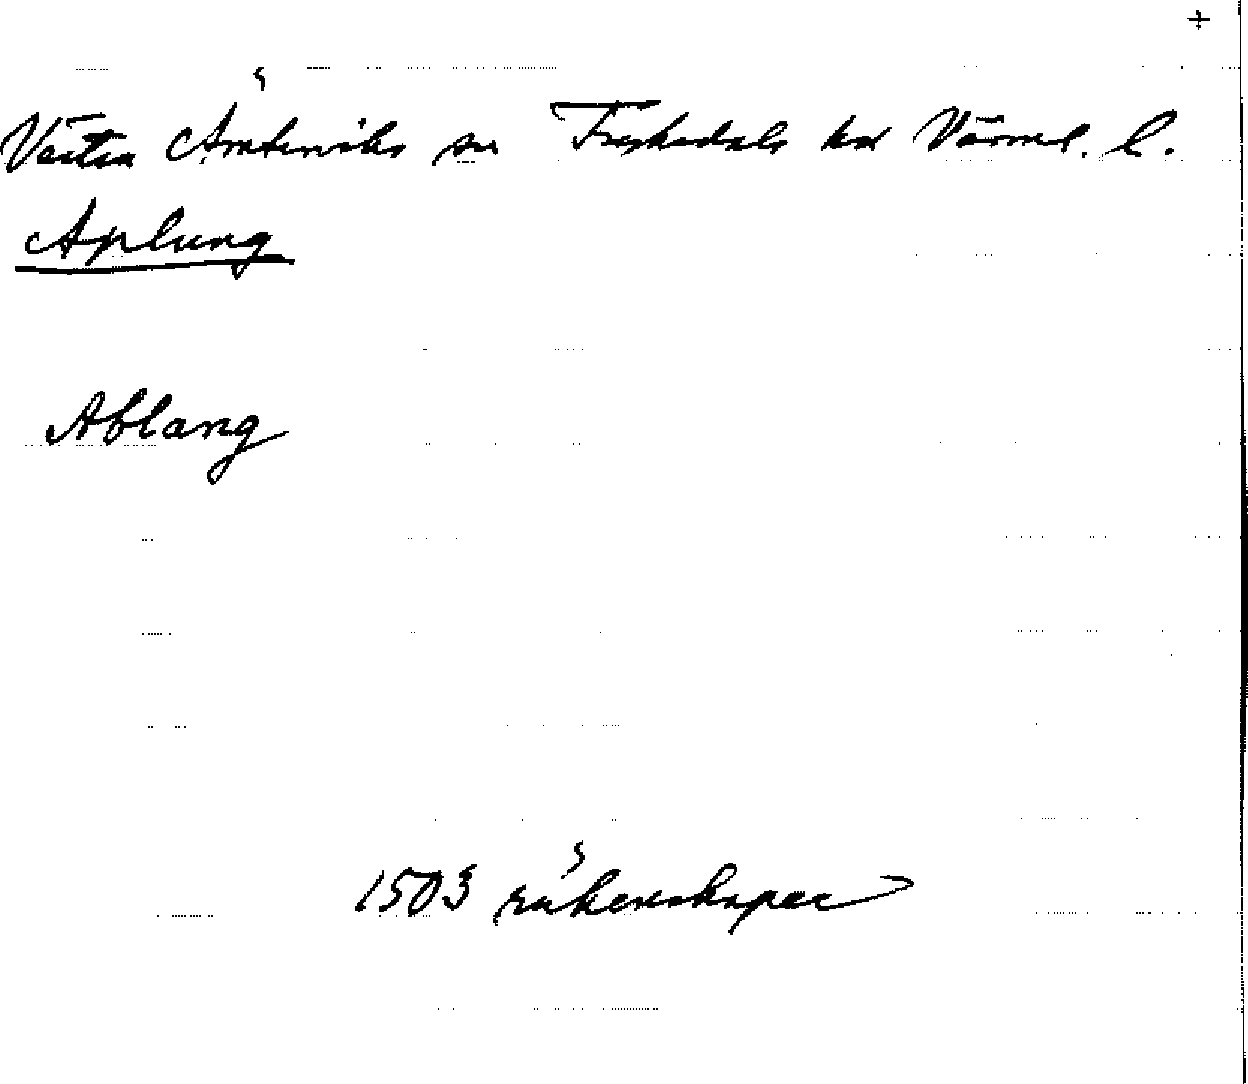 +
Västra Ämterviks sn Fryksdals hd Värml. l.
Aplung
Ablang
1503 räkenskaper